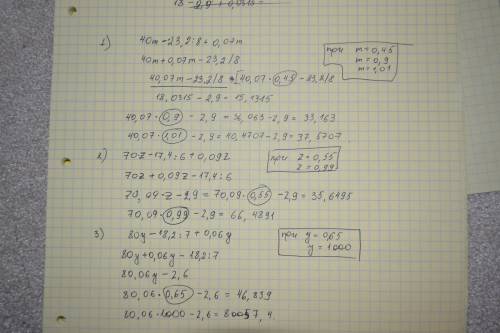 18 - 2,9 + 0,0315 =
1)
40m - 23,2:8 + 0,07m
при m = 0,45
m = 0,9
m = 1,01
40m + 0,07m - 23,2/8
40,07m - 23,2/8 = 40,07 · 0,45 - 23,2/8
18,0315 - 2,9 = 15,1315
40,07 · 0,9 - 2,9 = 36,063 - 2,9 = 33,163
40,07 · 1,01 - 2,9 = 40,4707 - 2,9 = 37,5707
2) 70z - 17,4:6 + 0,09z
при z = 0,55
z = 0,99
70z + 0,09z - 17,4:6
70,09 · z - 2,9 = 70,09 · 0,55 - 2,9 = 35,6495
70,09 · 0,99 - 2,9 = 66,4891
3) 80y - 18,2:7 + 0,06y
при y = 0,65
y = 1000
80y + 0,06y - 18,2:7
80,06y - 2,6
80,06 · 0,65 - 2,6 = 46,839
80,06 · 1000 - 2,6 = 80057,4